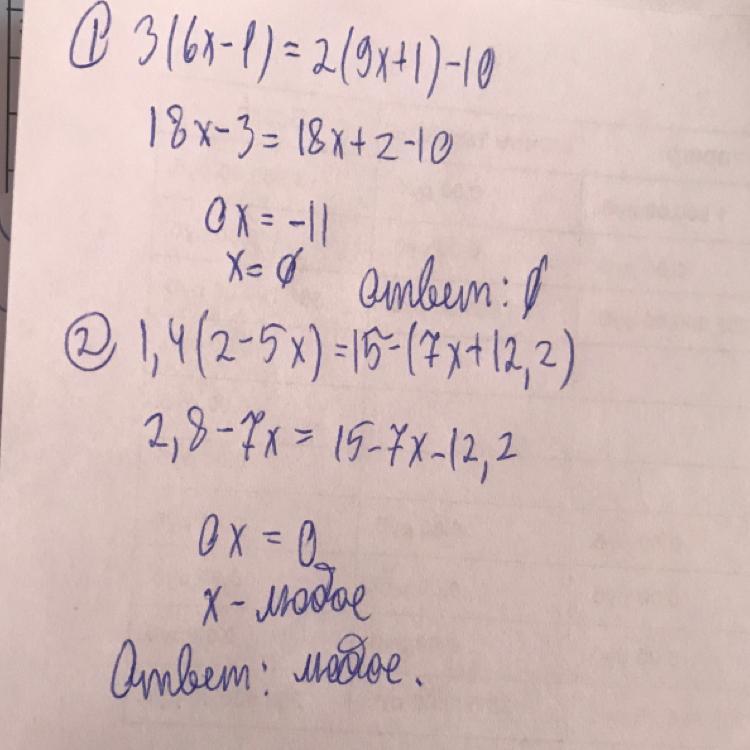 ① 3(6x-1)=2(9x+1)-10
18x-3=18x+2-10
0x=-11
x=∅
Ответ: ∅
② 1,4(2-5x)=15-(7x+12,2)
2,8-7x=15-7x-12,2
0x=0
x-любое
Ответ: любое.